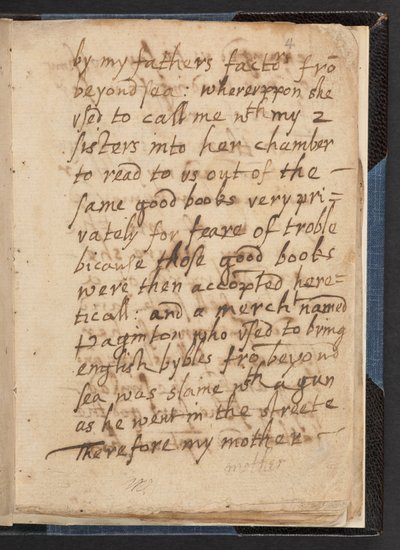 4
by my fathers factors frō
beyond sea: whereuppon she
vsed to call me wth my 2
sisters into her chamber
to read to vs out of the
same good books very pri=
vately for feare of troble
bicause those good books
were then accopted here=
ticall: and a merch named
Paginton who vsed to bring
english bybles frō beyond
sea was slaine wth a gun
as he went in the streete
Therefore my mother
mother